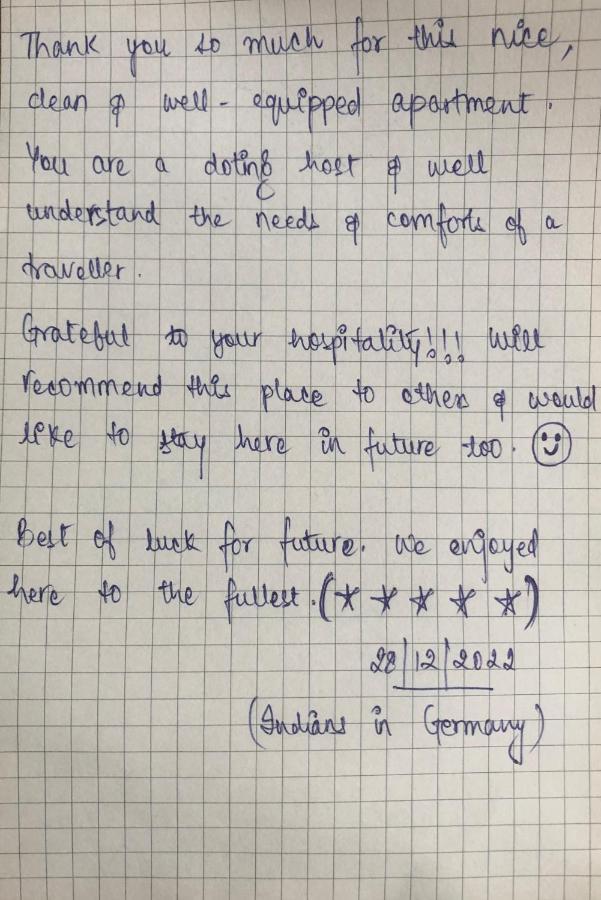 Thank you so much for this nice,
clean & well-equipped apartment.
You are a doting host & well
understand the needs & comforts of a
traveller.
Grateful to your hospitality!!! Will
recommend this place to others & would
like to stay here in future too. ☺
Best of luck for future. We enjoyed
here to the fullest. (★ ★ ★ ★ ★)
28/12/2022
(Indians in Germany)